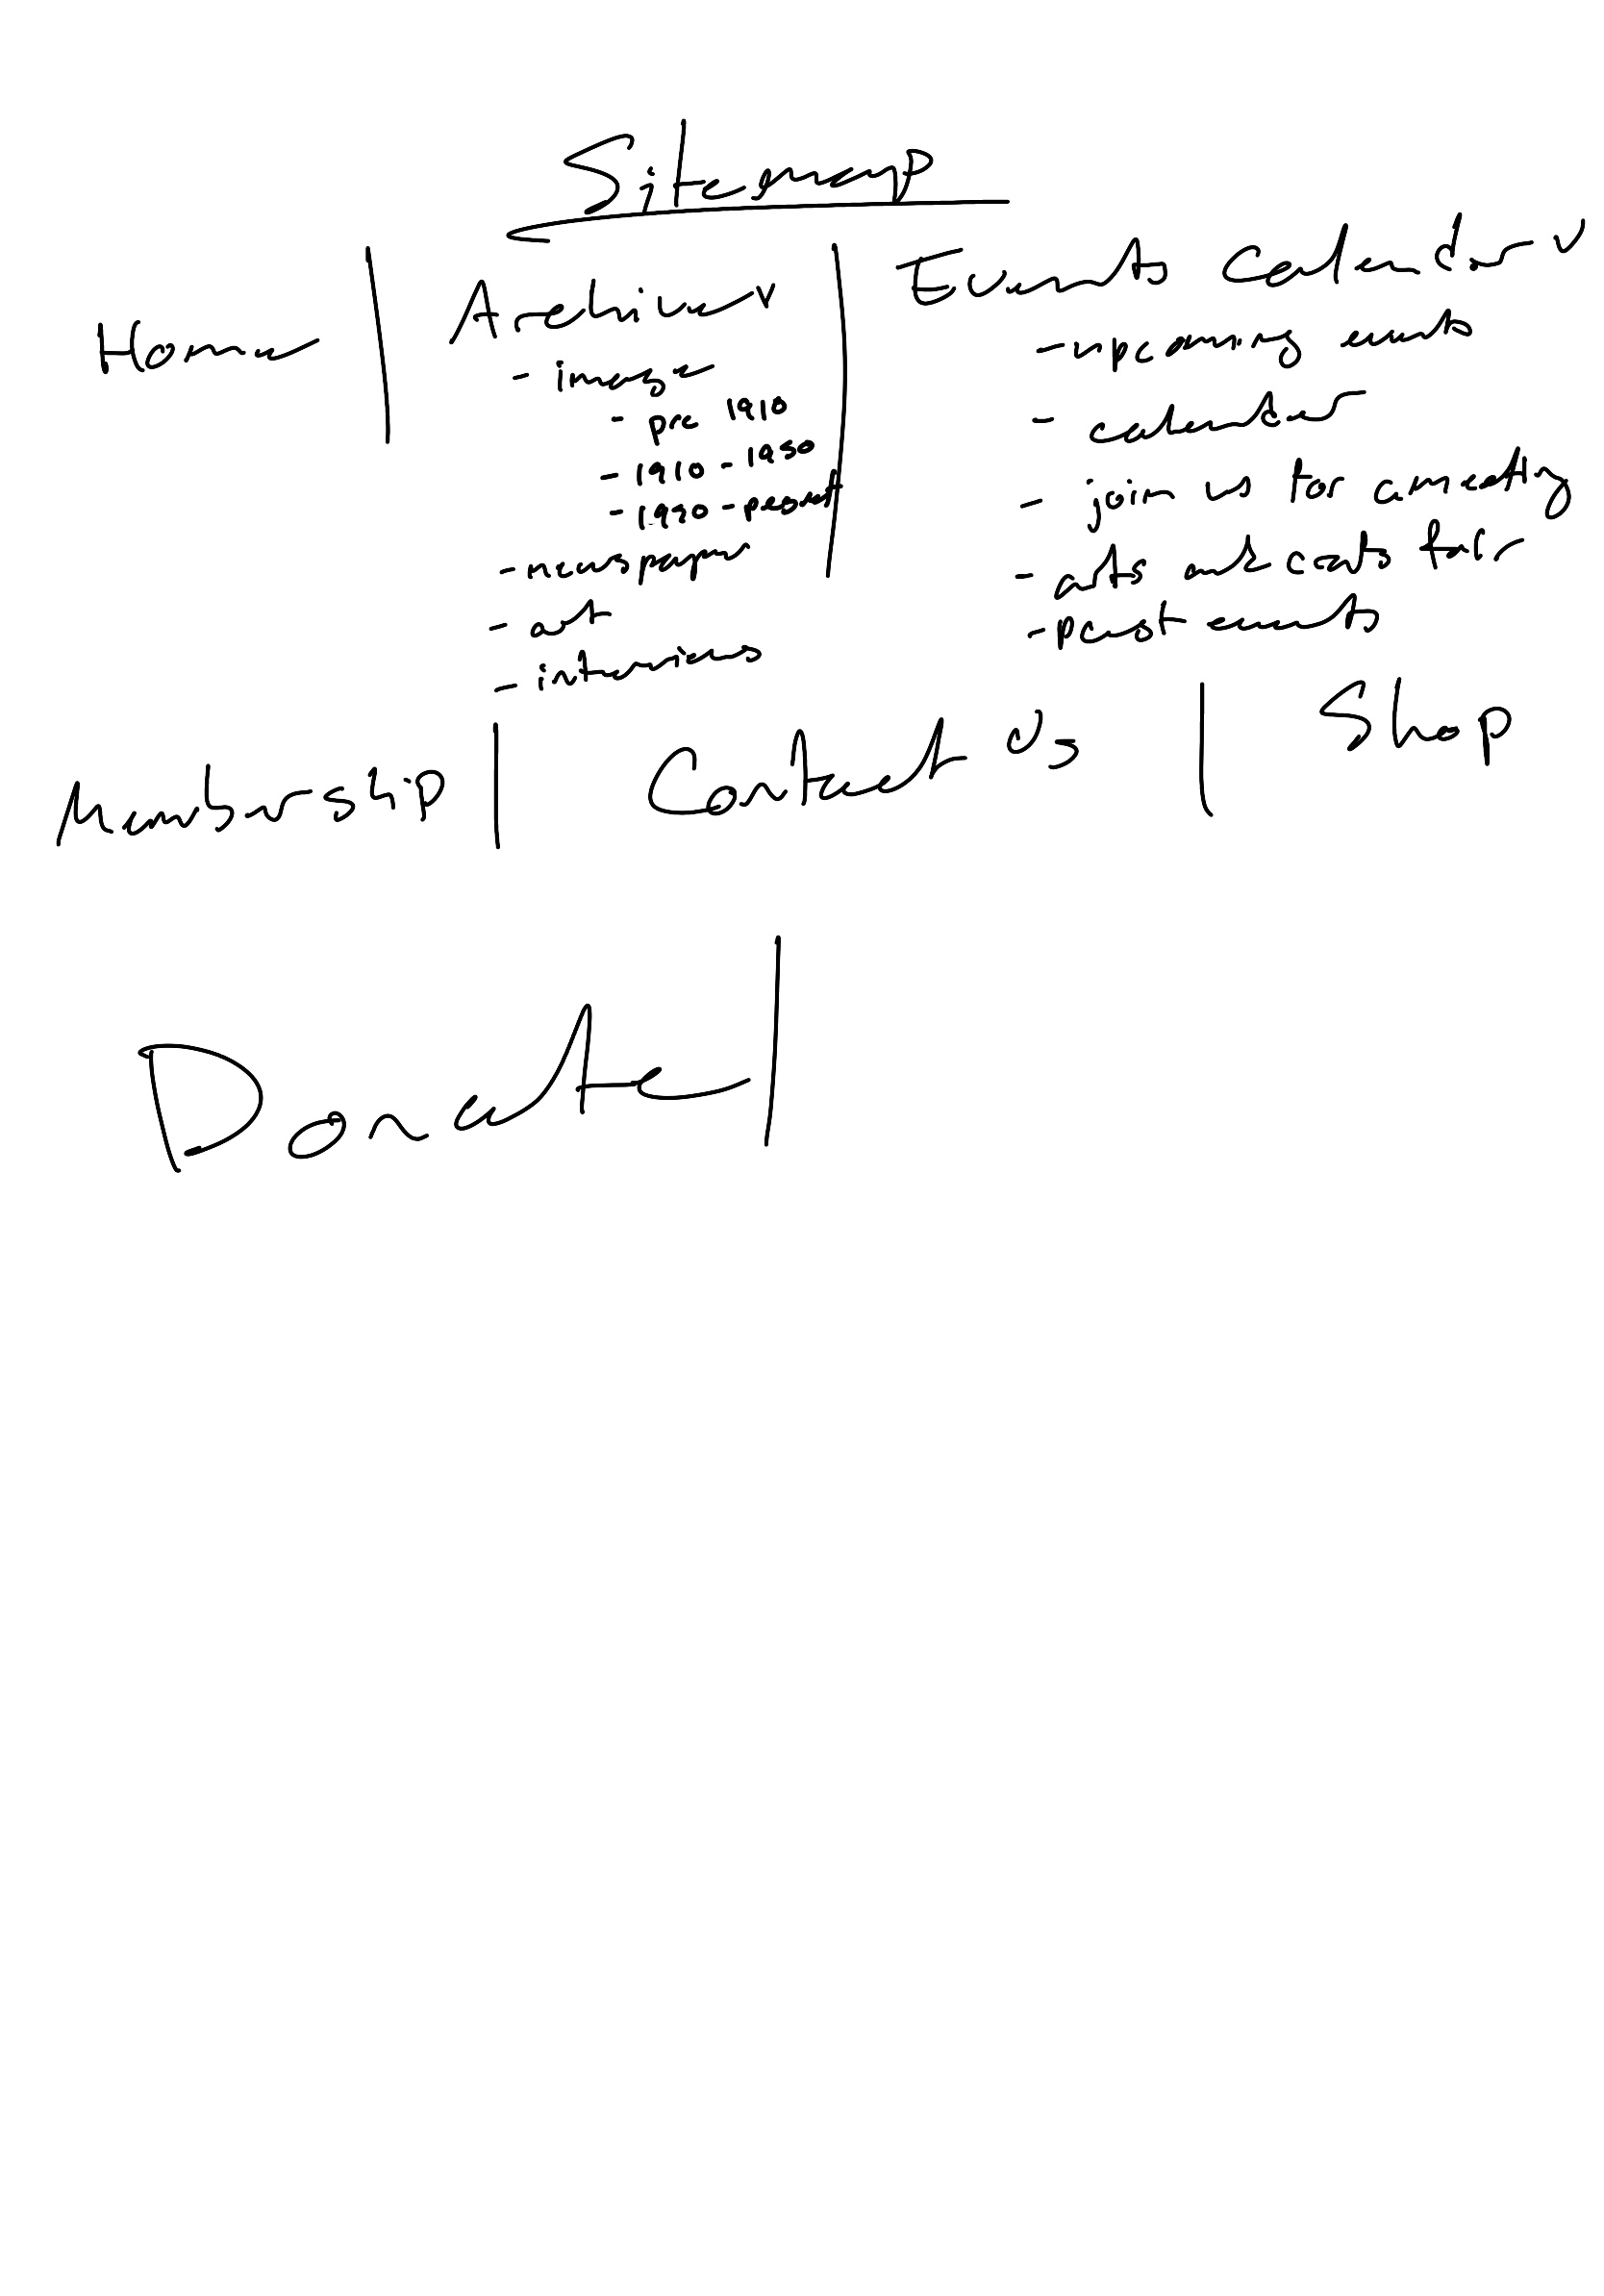 Sitemap
Home | Archive v | Events Calendar v
- image
- pre 1910
- 1910 - 1950
- 1990 - present
- newspaper
- art
- interviews
- upcoming events
- calendar
- join us for a meeting
- arts and crafts fair
- past events
Membership | Contact Us | Shop
Donate |